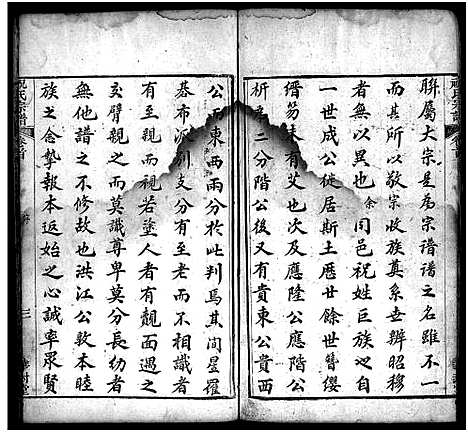 聨屬大宗是爲宗譜譜之名雖不一
而其所以敬宗收族奠系世辨昭穆
者無以異也余同邑祝姓巨族也自
一世成公徙居斯土歷廿餘世簪纓
縉笏未有艾也次及應隆公應階公
析二分階公後又有貴東公貴
公而東西兩分於此判焉其間星羅
碁布派別支分有至老而不相識者
有至親而視若塗人者有覿面遇之
交臂親之而莫識尊卑莫分長幼者
無他譜之不修故也洪江公敦本睦
族之念摯報本返始之心誠率眾賢
祝氏宗譜
卷首
三